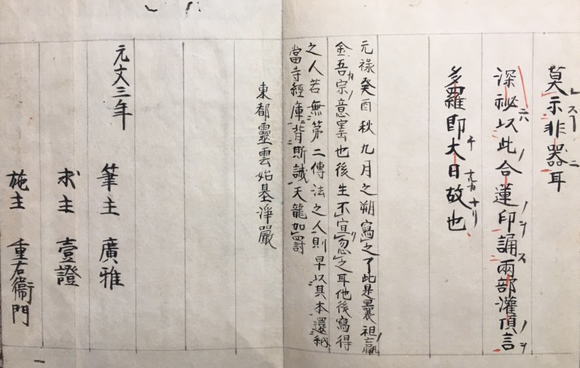 莫示非器耳
深祕以此合蓮印誦兩部灌頂言
多羅即大日故也
元禄癸酉秋九月之朔寫之了此是曩祖瀛
金吾宗意寨也後生不宜忽之耳他後寫得
之人若無第二傳法之人則早以具本還納
當寺經庫背斯誡天龍如罰
東都靈雲始基淨嚴
元文三年
筆主 廣雅
求主 壹證
施主 重右衞門